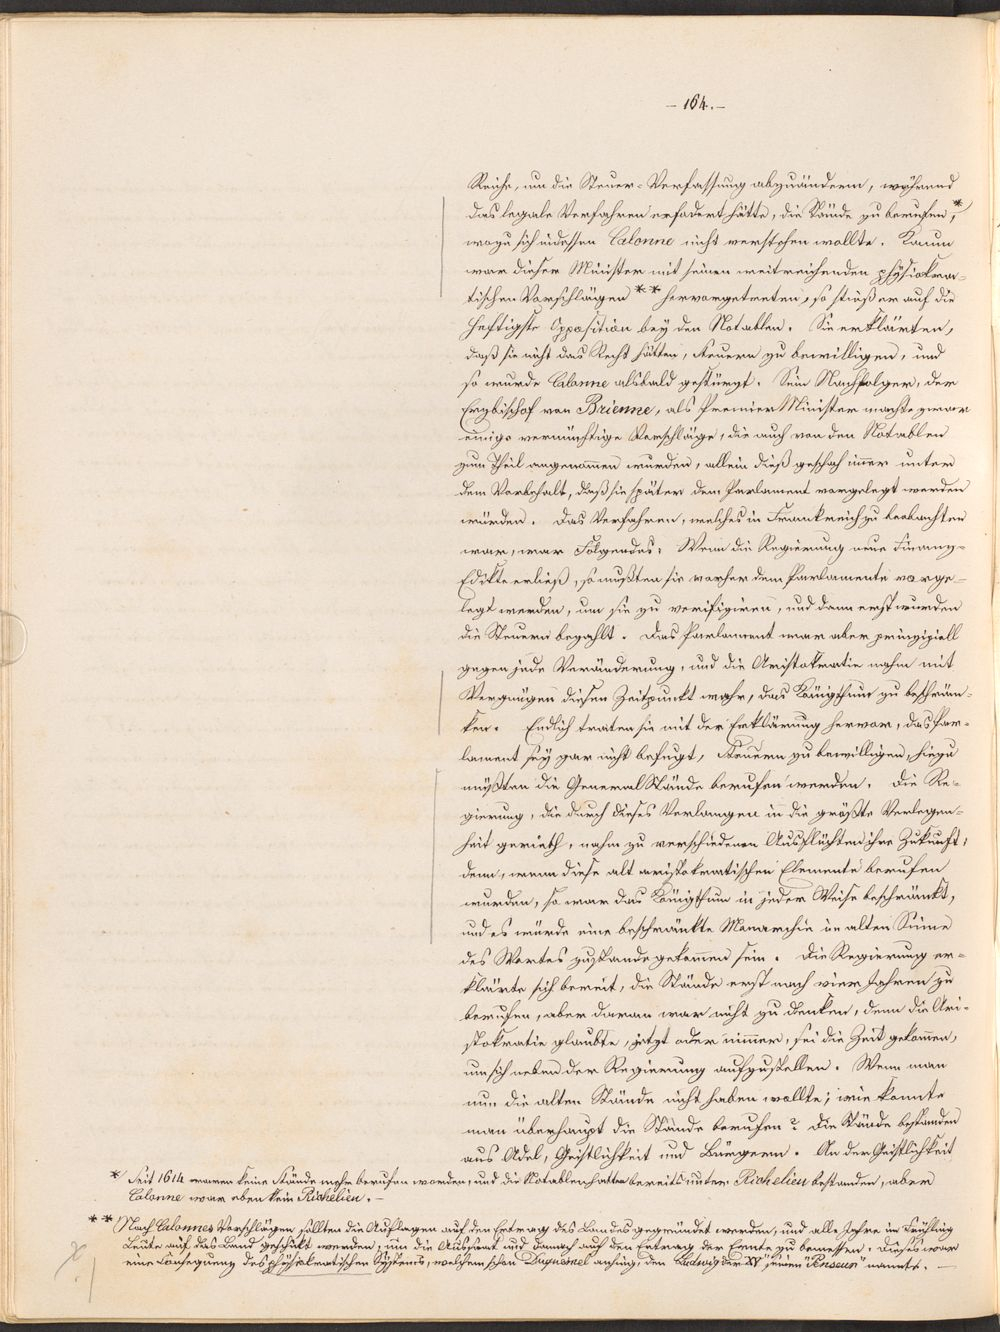 – 164. –
Reichs, um die Steuer-Verfassung abzuändern, während
das legale Verfahren erfodert hätte, die Stände zu berufen,*
wozu sich indessen Calonne nicht verstehen wollte. Kaum
war dieser Minister mit seinen weitreichenden physiokra-
tischen Vorschlägen ** hervorgetreten, so stieß er auf die
heftigste Opposition bey den Notablen. Sie erklärten,
daß sie nicht das Recht hätten, Steuern zu bewilligen, und
so wurde Calonne alsbald gestürzt. Sein Nachfolger, der
Erzbischof von Brienne, als Premier Minister machte zwar
einige vernünftige Vorschläge, die auch von den Notablen
zum Theil angenommen wurden, allein dieß geschah immer unter
dem Vorbehalt, daß sie später dem Parlament vorgelegt werden
würden. Das Verfahren, welches in Frankreich zu beobachten
war, war Folgendes: Wenn die Regierung neue Finanz-
Edikte erließ, so mußten sie vorher dem Parlamente vorge-
legt werden, um sie zu verifiziren, und dann erst wurden
die Steuern bezahlt. Das Parlament war aber prinzipiell
gegen jede Veränderung, und die Aristokratie nahm mit
Vergnügen diesen Zeitpunkt wahr, das Königthum zu beschrän-
ken. Endlich traten sie mit der Erklärung hervor, das Par-
lament sey gar nicht befugt, Steuern zu bewilligen, hiezu
müßten die General Stände berufen werden. Die Re-
gierung, die durch dieses Verlangen in die größte Verlegen-
heit gerieth, nahm zu verschiedenen Ausflüchten ihre Zukunft,
denn, wenn diese alt aristokratischen Elemente berufen
wurden, so war das Königthum in jeder Weise beschränkt,
und es würde eine beschränkte Monarchie im alten Sinne
des Wortes zustande gekommen sein. Die Regierung er-
klärte sich bereit, die Stände erst nach vier Jahren zu
berufen, aber daran war nicht zu denken, denn die Ari-
stokratie glaubte, jetzt oder nimmer, sei die Zeit gekommen,
um sich neben der Regierung aufzustellen. Wenn man
nun die alten Stände nicht haben wollte; wie konnte
man überhaupt die Stände berufen? Die Stände bestanden
aus Adel, Geistlichkeit und Bürgern. An der Geistlichkeit
* Seit 1614 waren keine Stände mehr berufen worden, und die Notablen hatten bereits unter Richelieu bestanden, aber
Calonne war eben kein Richelieu. –
** Nach Calonnes Vorschlägen sollten die Auflagen auf den Ertrag des Landes gegründet werden, und alle Jahre im Frühling
Leute auf das Land geschickt werden, um die Aussaat und danach auf den Ertrag der Ernte zu bemessen. Dieses war
eine Consequenz des physiokratischen Systems, welchem schon Duquesnel anhing, den Ludwig der XV "seinen Penseur" nannte. –